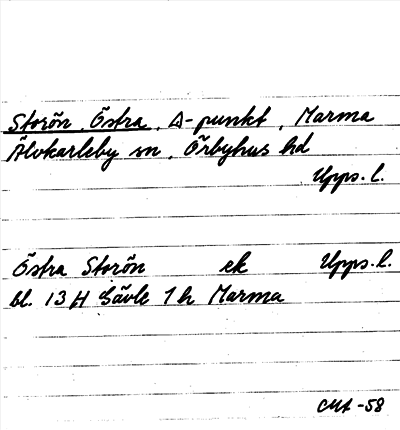 Storön, Östra, Δ-punkt, Marma
Älvkarleby sn, Örbyhus hd
Upps. l.
Östra Storön ek Upps. l.
bl. 13 H Gävle 1 h Marma
CMA -58